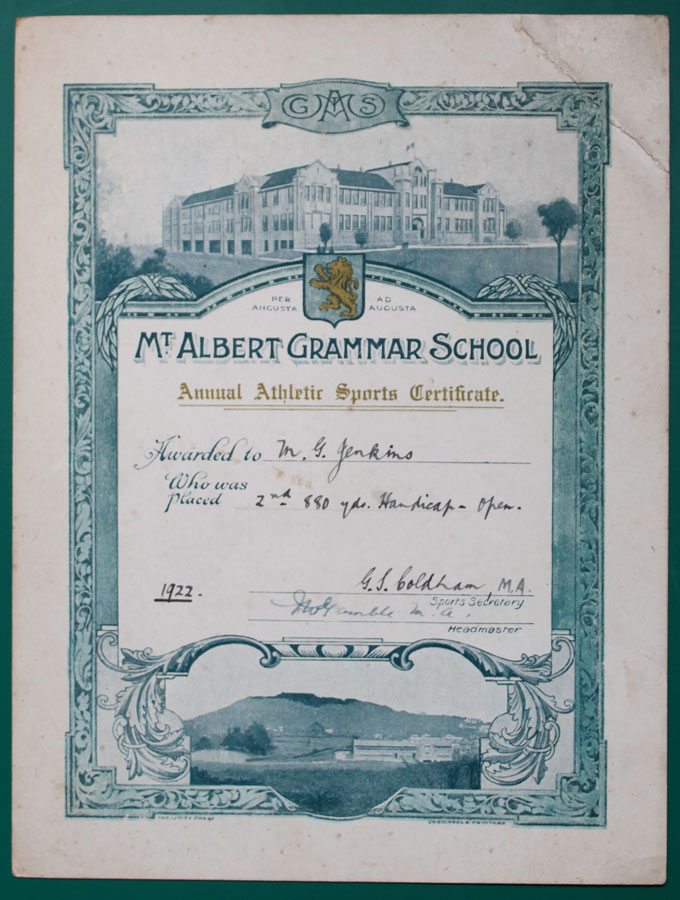 G A S
PER AD
ANGUSTA AUGUSTA
MT ALBERT GRAMMAR SCHOOL
Annual Athletic Sports Certificate.
Awarded to M. G. Jenkins
Who was
placed 2nd 880 yds. Handicap - Open.
G. S. Coldham, M.A.
1922. Sports Secretary
M. A.
Headmaster